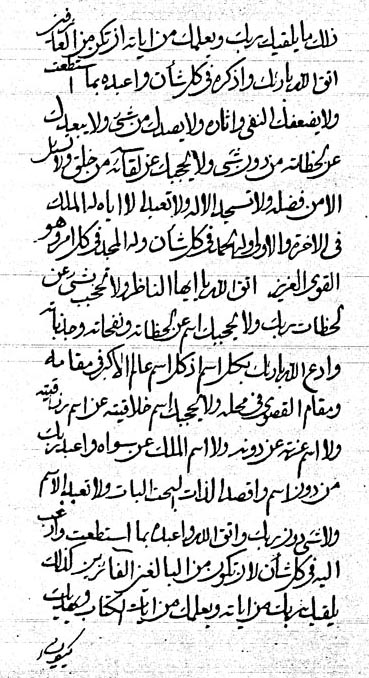 ذلك ما يلقيك ربك ويعلمك من اياته ان تكن من العارفين
اتق الله ربك واذكره في كل شأن واعبده بما استطعت
ولا يضعفك النفي واثباته ولا يصدك من شيء ولا يبعدك
عن لحظاته من دون شيء ولا يحجبك عن لقائه من خلق ولا تسئل
الا من فضله ولا تسجد الا له ولا تعبد الا اياه له الملك
في الاخرة والاولى وله الحمد في كل شأن وله المجد في كل امر وهو
القوي العزيز اتق الله يا ايها الناظر ولا تحجب بشيء عن
لحظات ربك ولا يحجبك اسم عن لحظاته ونفحاته وجذباته
وادع الله ربك بكل اسم اذ كل اسم عالم الاكبر في مقامه
ومقام القصوى في محله ولا يحجبك اسم خلاقيته عن اسم رزاقيته
ولا اسم عن دونه ولا اسم الملك عن سواه واعبد ربك
من دون اسم واقصد الذات البحت البات ولا تعبد الاسم
ولا شيء دون ربك واتق الله واعبده بما استطعت وارغب
اليه في كل شأن لتكون من البالغين الفائزين كذلك
يلقيك ربك من اياته ويعلمك من ايات الكتاب ويهديك